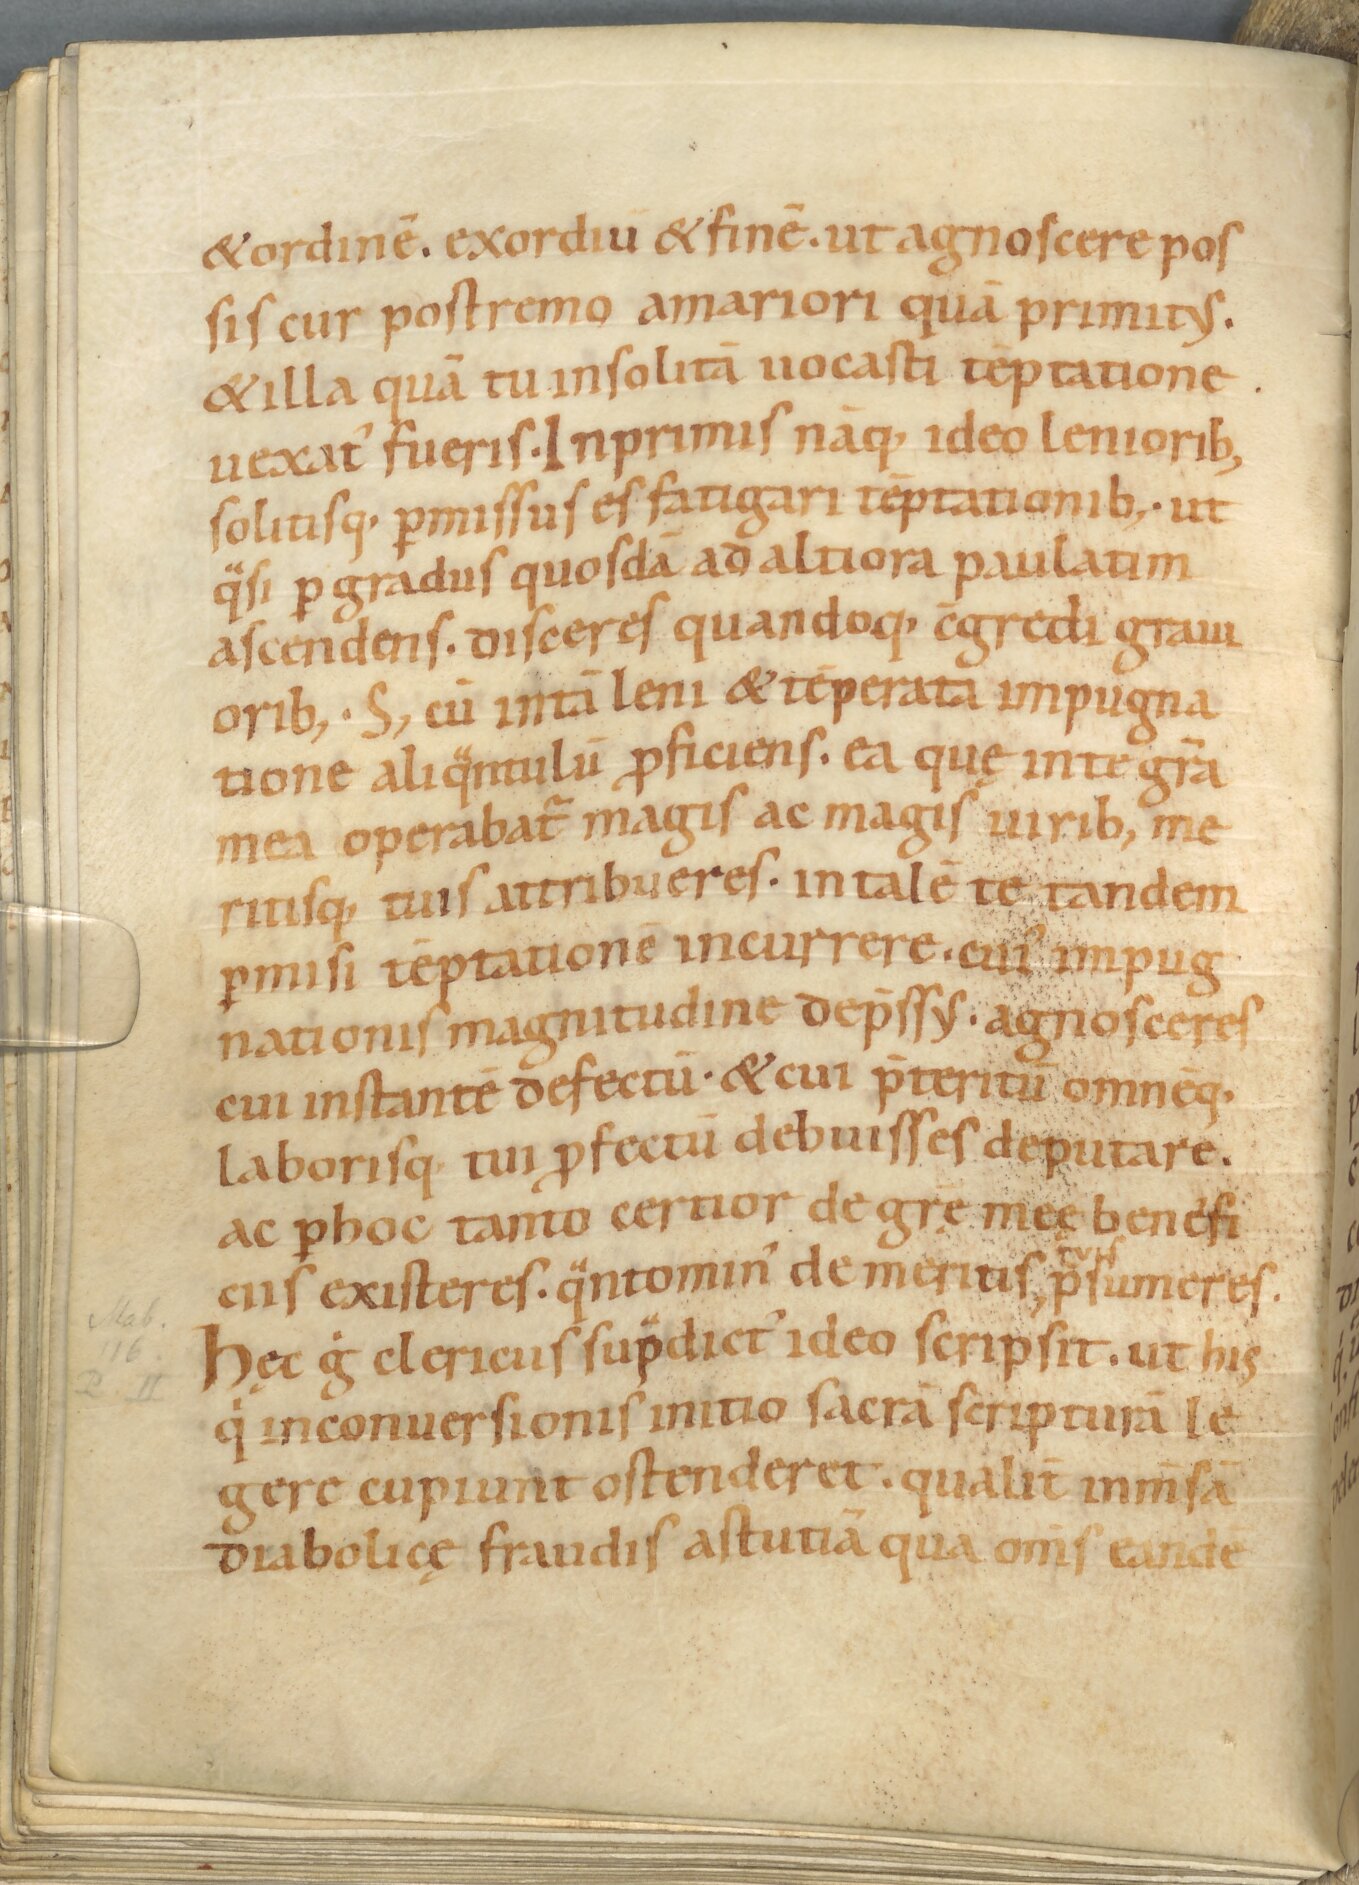 &ordinē. exordiū &finē. ut agnoscere pos
sis cur postremo amariori quā primitꝰ.
&illa quā tu insolitā uocasti tēptatione
uexatꝰ fueris. Inprimis nāq; ideo leniorib;
solitisq; ꝑmissus es fatigari tēptationib;. ut
qͣsi ꝑ gradus quosdā ad altiora paulatim
ascendens. disceres quandoq; c̄gredi graui
orib;. S; cū intā leni & tēperata impugna
tione aliqͣntulū ꝓficiens. ea quę inte gr̄a
mea operabat᷑ magis ac magis uirib; me
ritisq; tuis attribueres. in talē te tandem
ꝑmisi tēptationē incurrere. cuiꝰ impug
nationis magnitudine dep̄ssꝰ. agnosceres
cui instantē defectū. & cui p̄teritū omnēq;
laborisq; tui ꝓfectū debuisses deputare.
ac ꝑ hoc tanto certior de gr̄ę meę benefi
ciis existeres. qͣnto minꝰ de meritis, tuis p̄sumeres.
Hęc gͥ clericus supͣdictꝰ ideo scripsit. ut his
qͥ in conuersionis initio sacrā scripturā le
gere cupiunt ostenderet. qualit̄ inm̄sā
diabolicę fraudis astutiā qua om̄s eandē
Mab.
116.